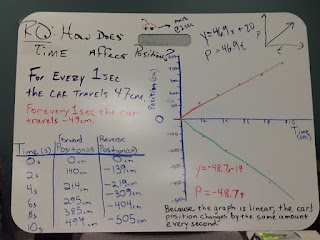 RQ: How Does
Time affect Position?
For Every 1sec
the car travels 47cm
For every 1sec the car
travels -49cm.
y=46.9x+20
P=46.9t
P
t
Position (cm)
Time (sec)
Time(s)
Forward Position(cm)
Reverse Position(cm)
0s 0cm 0cm
2s 140cm -139cm
4s 214cm -219cm
6s 295cm -309cm
8s 385cm -404cm
10s 494cm -505cm
y=-48.7x-19
P=-48.7t
Because the graph is linear, the car
position changes by the same amount
every second.